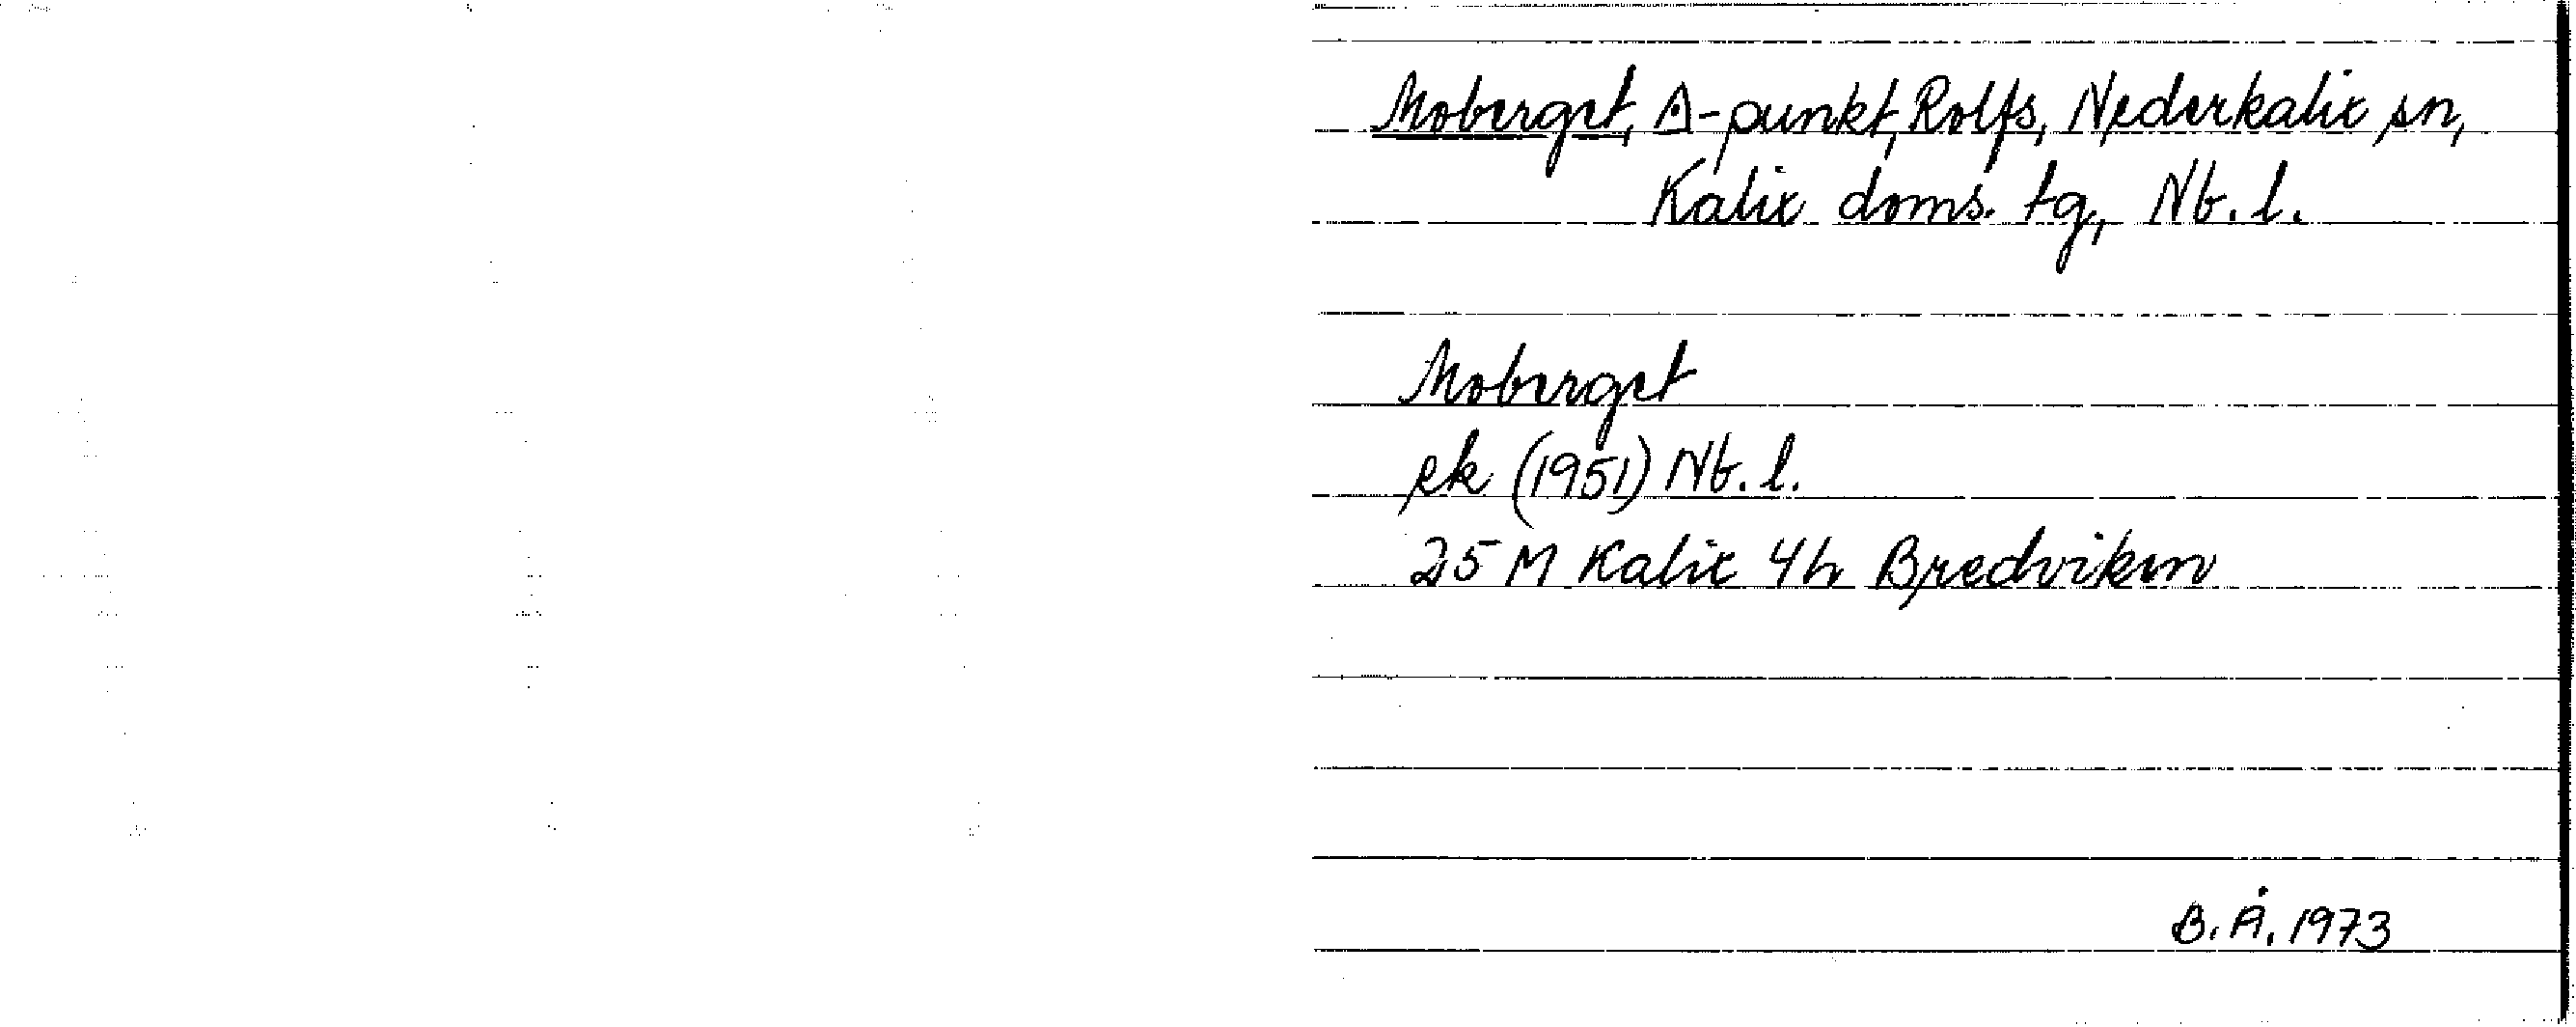 Moberget, Δ-punkt, Rolfs, Nederkalix sn,
Kalix doms. tg, Nb. l.
Moberget
ek (1951) Nb. l.
25 M Kalix 4h Bredviken
B. Å. 1973